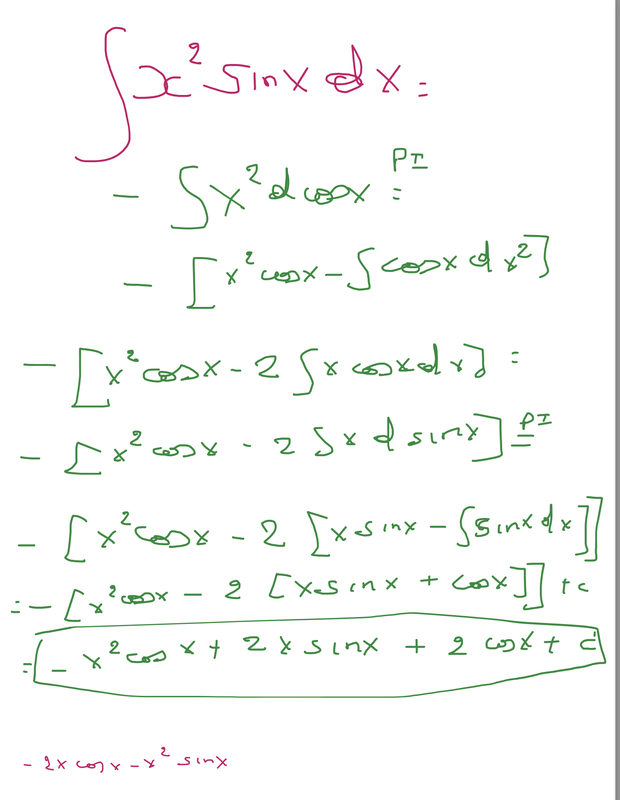 ∫x² sinx dx =
- ∫x² d cosx PI =
- [x² cosx - ∫ cosx d x²]
- [x² cosx - 2 ∫ x cosx dx] =
- [x² cosx - 2 ∫ x d sinx] PI =
- [x² cosx - 2 [x sinx - ∫sinx dx]]
= - [x² cosx - 2 [x sinx + cosx]] + c
= - x² cosx + 2x sinx + 2 cosx + c
- 2x cosx - x² sinx